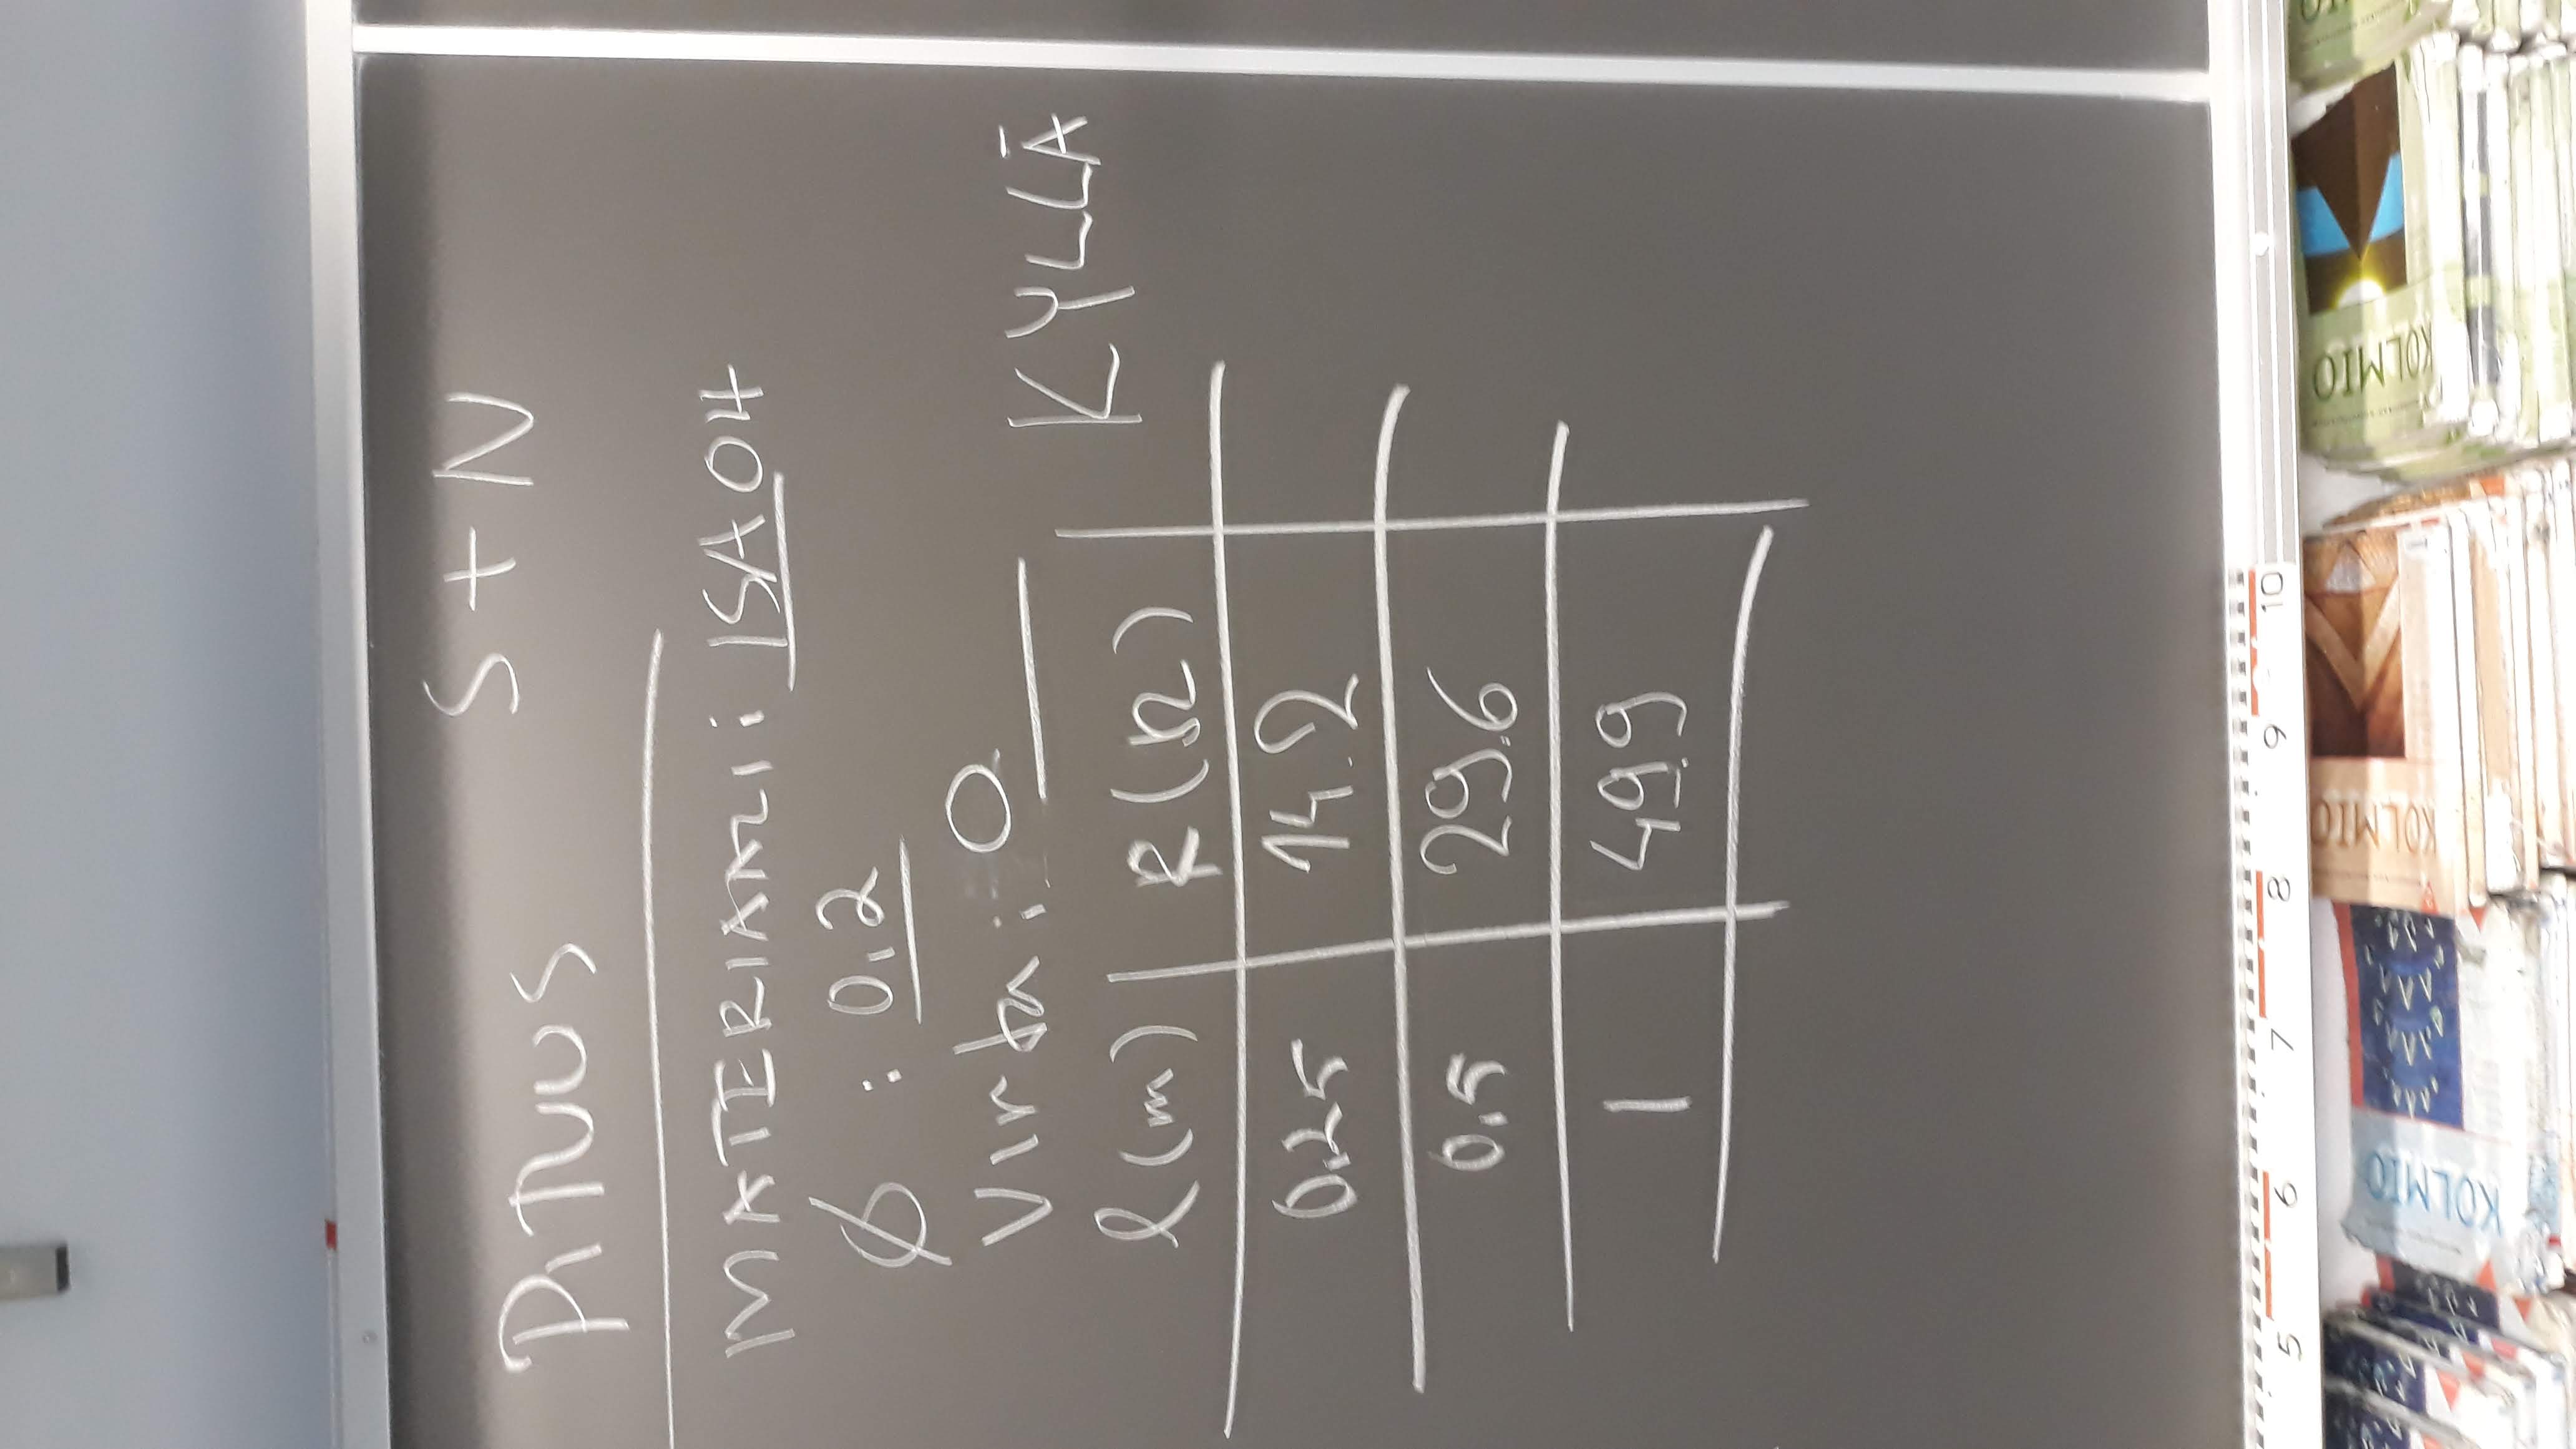 S + N
PITUUS
MATERIAALI: ISAOH
Ø : 0,2
Virta: 0
KYLLÄ
l(m) R(Ω)
0,25 14.2
0,5 29.6
1 49.9
5 6 7 8 9 10
KOLMIO
KOLMIO
KOLMIO